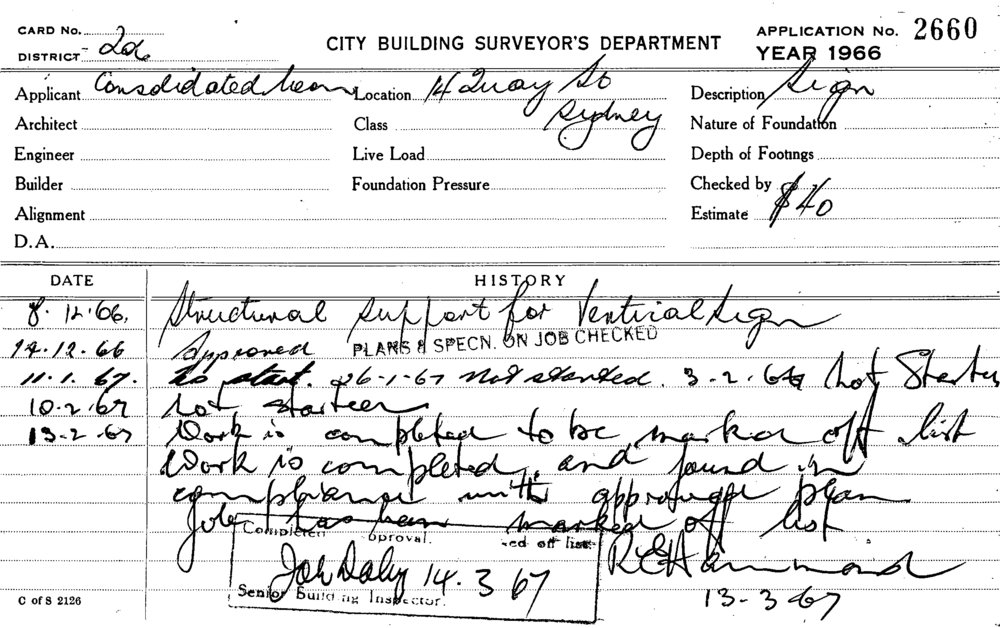 CARD No.
DISTRICT 2a
CITY BUILDING SURVEYOR'S DEPARTMENT
APPLICATION No. 2660
YEAR 1966
Applicant Consolidated Location 14 Quay St Description Sign
Architect Class Sydney Nature of Foundation
Engineer Live Load Depth of Footings
Builder Foundation Pressure Checked by
Alignment Estimate $40
D.A.
DATE HISTORY
8.12.66. Structural support for Vertical Sign
14.12.66 Approved PLANS & SPECN. ON JOB CHECKED
11.1.67. No start. 26-1-67 Not started. 3-2-67 Not
10.2.67 Not
13-2-67 Work is completed to be marked off list
Work is completed, and found in
compliance with approved plan
Job has been marked off list
Completed pproval. ed off list
14.3.67
Senior Building Inspector.
R C Hammond
13-3-67
C of S 2126